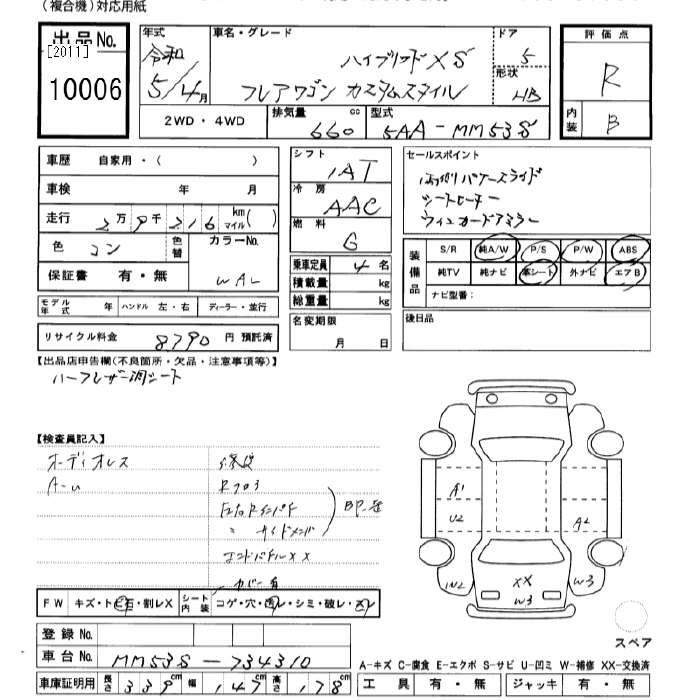 (複合機)対応用紙
出品No.
[2011]
10006
年式
令和
5/4月
車名・グレード
ハイブリッドXS
フレアワゴン カスタムスタイル
ドア
5
形状
HB
2WD・4WD
排気量
660 cc
型式
5AA-MM53S
評価点
R
内装
B
車歴 自家用・( )
車検 年 月
走行 2万9千216 km マイル( )
色
コン
色替
カラーNo.
WAL
保証書 有・無
モデル年式 年 ハンドル 左・右 ディーラー・並行
リサイクル料金 8790 円 預託済
シフト
IAT
冷房
AAC
燃料
G
乗車定員 4 名
積載量 kg
総重量 kg
名変期限
月 日
セールスポイント
両側パワースライド
シートヒーター
ウィンカードアミラー
装備品
S/R 純A/W P/S P/W ABS
純TV 純ナビ 革シート 外ナビ エアB
ナビ型番:
後日品
【出品店申告欄(不良箇所・欠品・注意事項等)】
ハーフレザー調シート
【検査員記入】
オーディオレス
A-u
修復
R703
左右Rインパネ
〃 サイドメンバ
エンドパネルXX
カバー有
A1
U2
A2
W2
XX
W3
W3
FW キズ・トビ石・割レX シート内装 コゲ・穴・スレ・シミ・破レ・ヌレ
登録No.
車台No. MM53S-734310
車庫証明用 長さ 339 cm 幅 147 cm 高さ 178 cm
スペア
A-キズ C-腐食 E-エクボ S-サビ U-凹ミ W-補修 XX-交換済
工具 有・無 ジャッキ 有・無